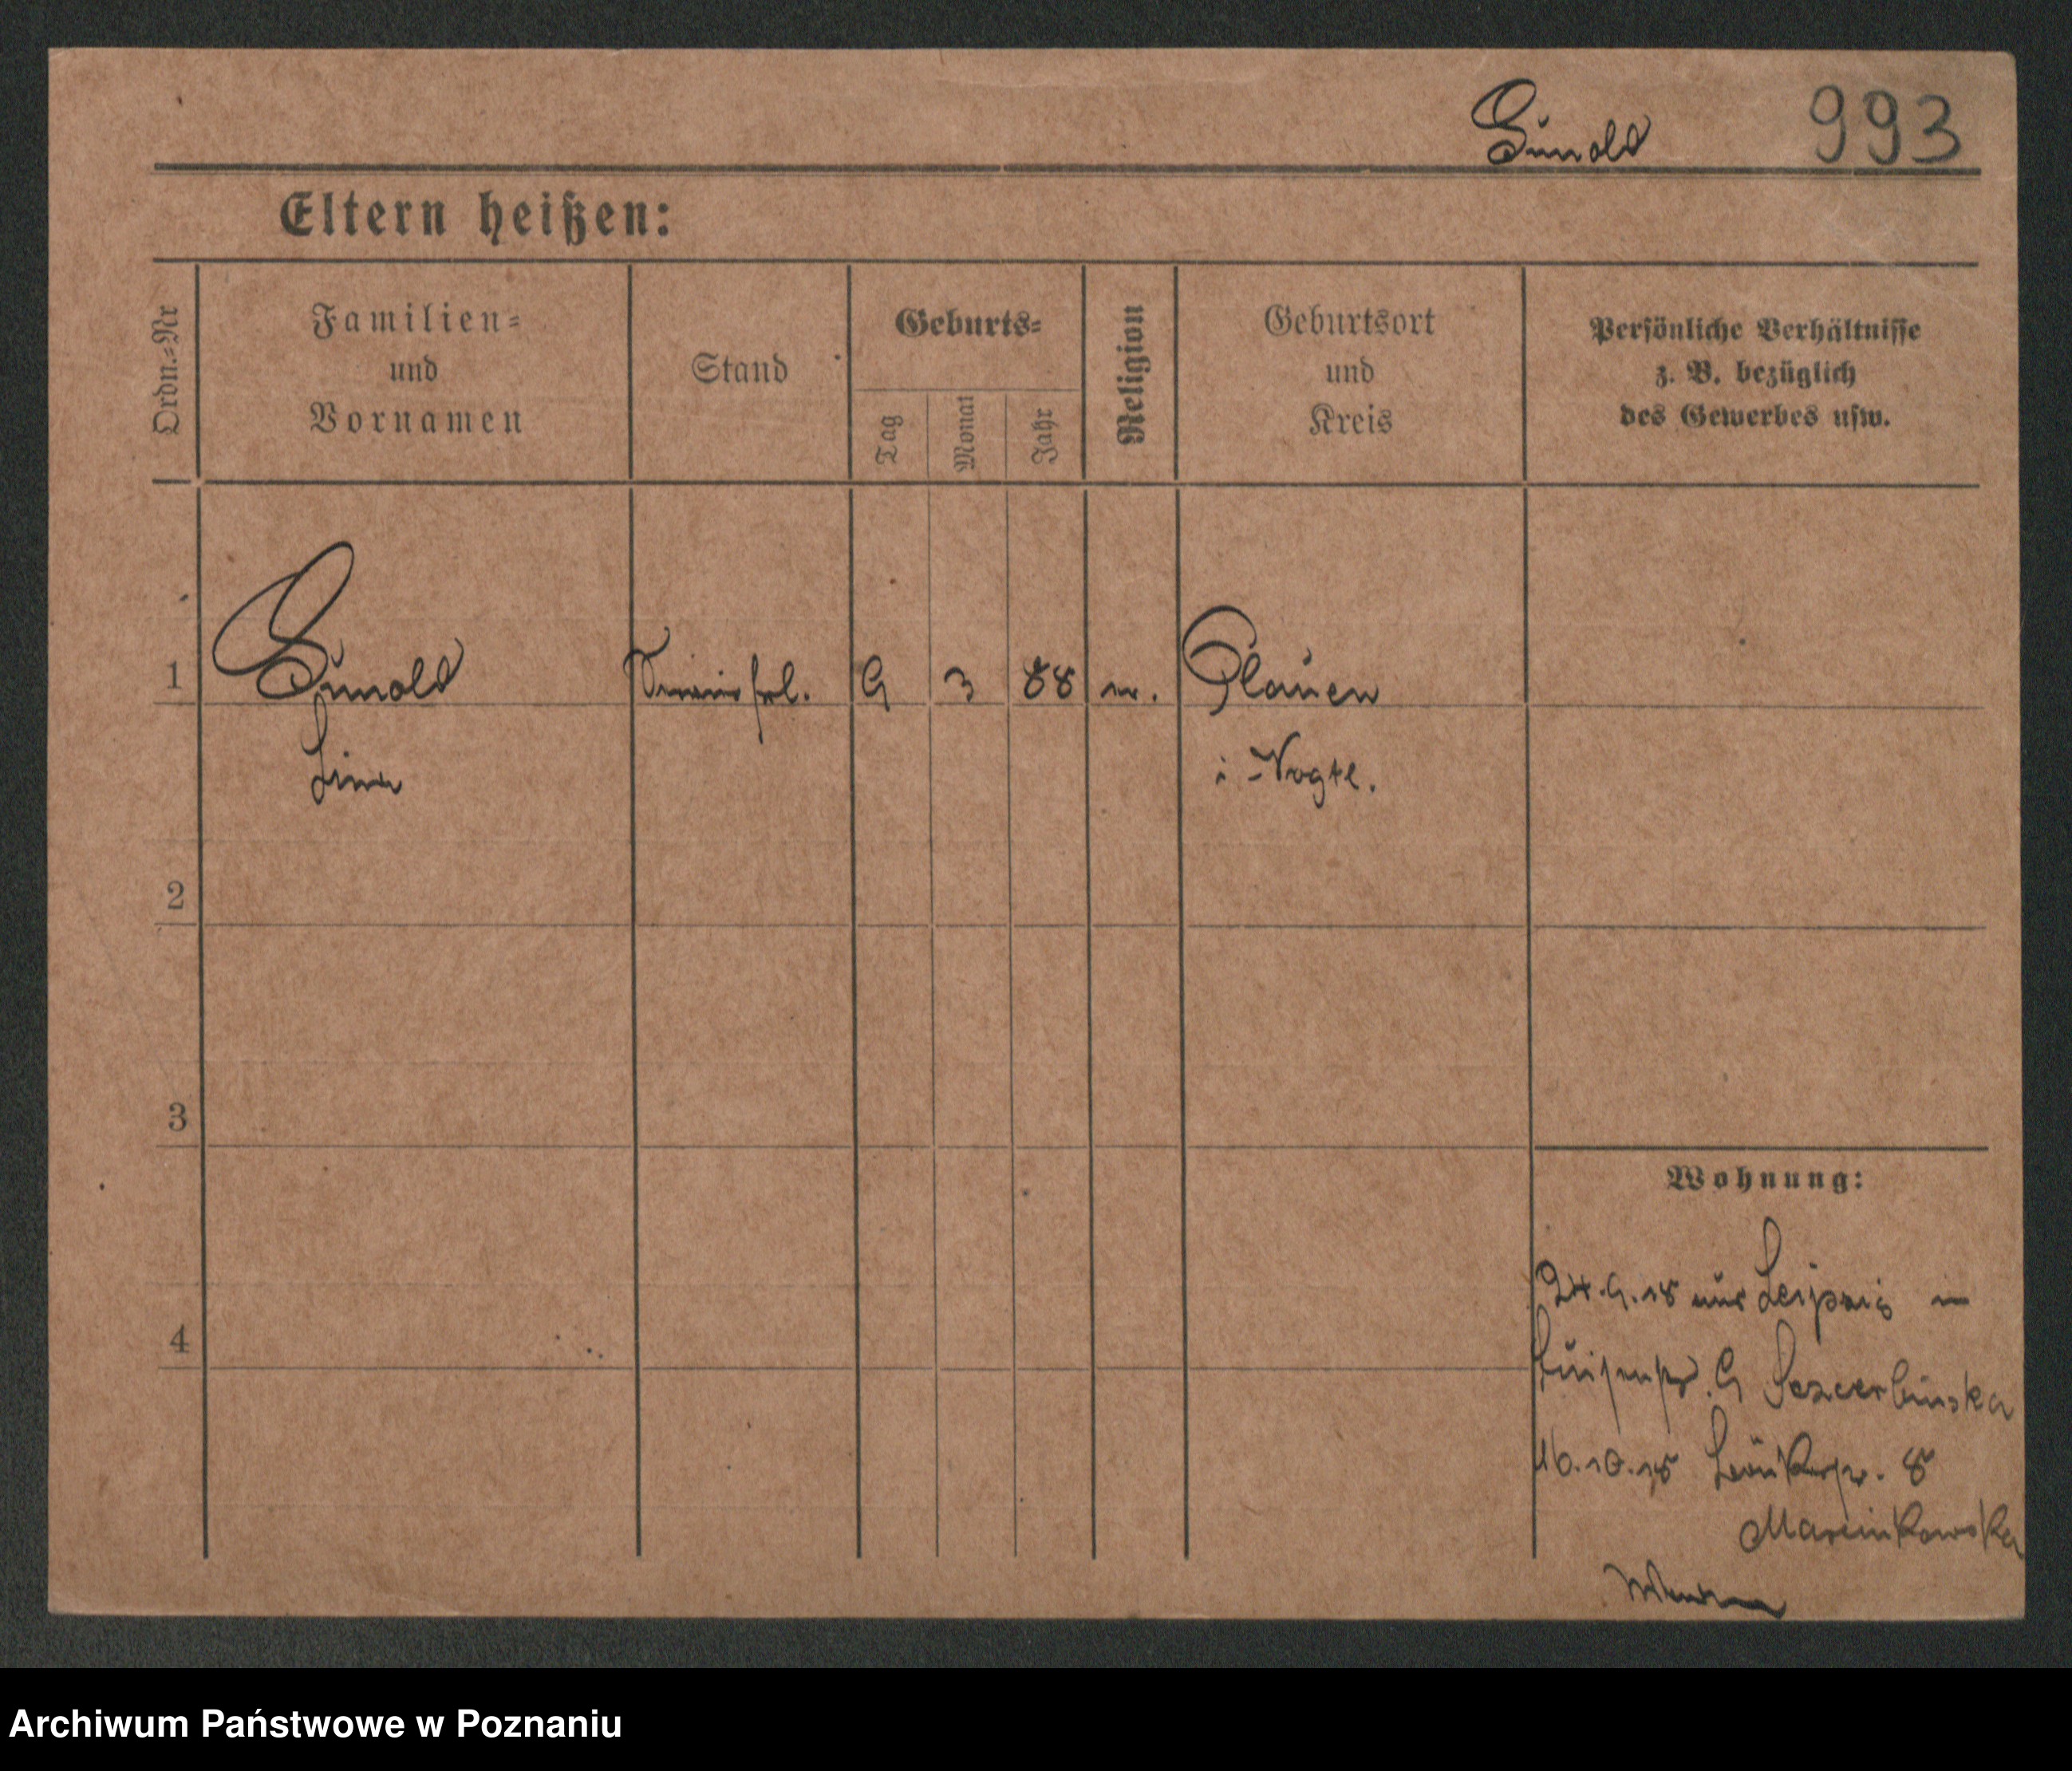 Günold 993
Eltern heißen:
Ordn.=Nr
Familien=
und
Vornamen
Stand
Geburts=
Tag
Monat
Jahr
Religion
Geburtsort
und
Kreis
Persönliche Verhältnisse
z. B. bezüglich
des Gewerbes usw.
1 Günold 9 3 88 Plauen
i Vogtl.
2
3
4
Wohnung:
24.9.18 aus Leipzig in
Luisenstr. 9 Szczerbinska
16.10.18 8
Marcinkowska
Archiwum Państwowe w Poznaniu